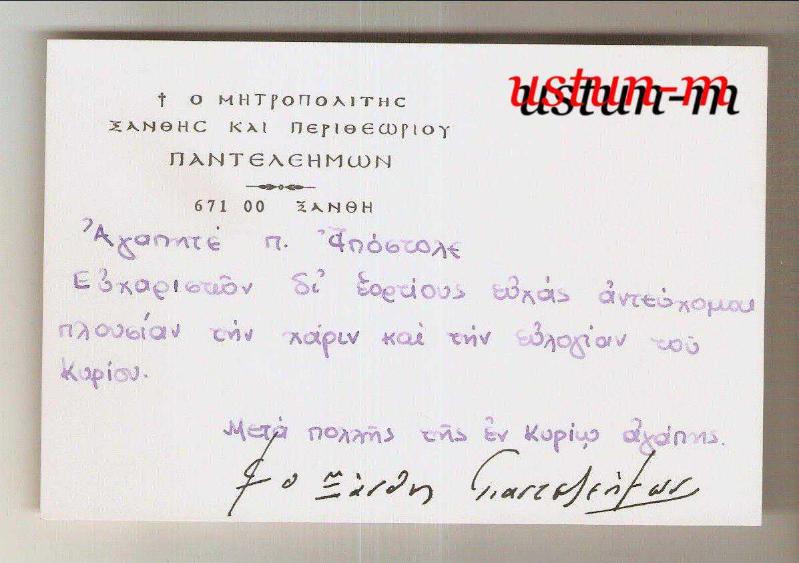 ustun-m
† Ο ΜΗΤΡΟΠΟΛΙΤΗΣ
ΞΑΝΘΗΣ ΚΑΙ ΠΕΡΙΘΕΩΡΙΟΥ
ΠΑΝΤΕΛΕΗΜΩΝ
671 00 ΞΑΝΘΗ
Ἀγαπητέ π. Ἀπόστολε
Εὐχαριστῶν δι' ἑορτίους εὐχάς ἀντεύχομαι
πλουσίαν τήν χάριν καί τήν εὐλογίαν τοῦ
Κυρίου.
Μετά πολλῆς τῆς ἐν Κυρίῳ ἀγάπης.
† ο Ξάνθης Παντελεήμων